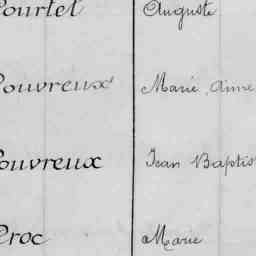 Pourtet Auguste
Pouvreux Marie, Aimé
Pouvreux Jean Baptis
Proc Marie